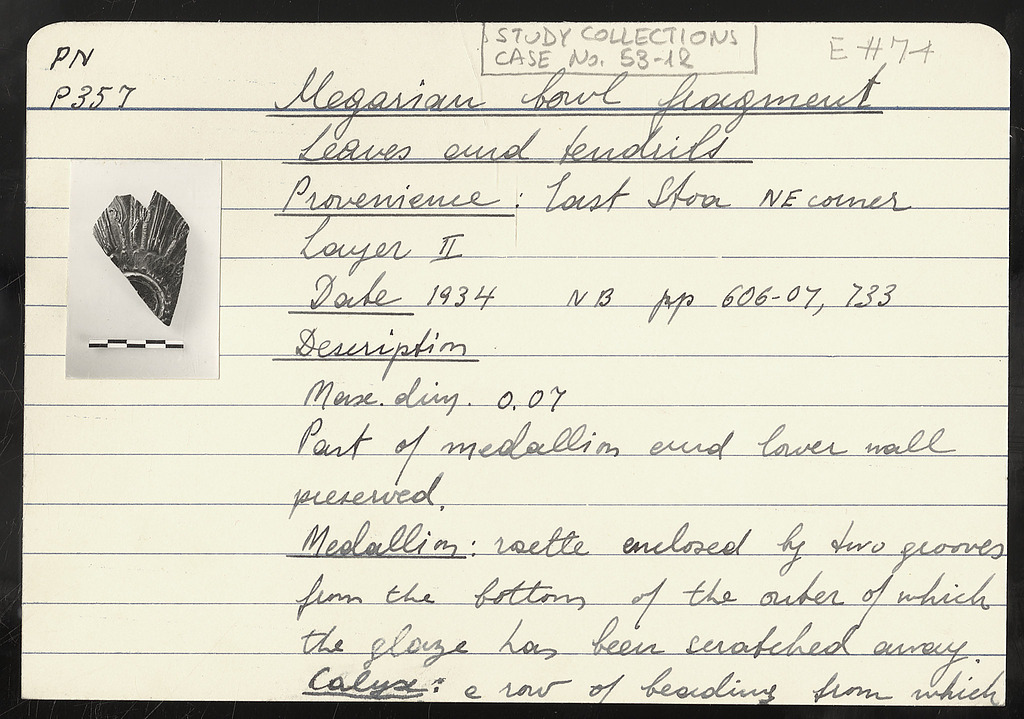 PN
P357
STUDY COLLECTIONS
CASE No. 53-12
E #74
Megarian bowl fragment
Leaves and tendrils
Provenience: East Stoa NE corner
Layer II
Date 1934 NB pp 606-07, 733
Description
Max. dim. 0.07
Part of medallion and lower wall
preserved.
Medallion: rosette enclosed by two grooves
from the bottom of the outer of which
the glaze has been scratched away.
Calyx: a row of beading from which